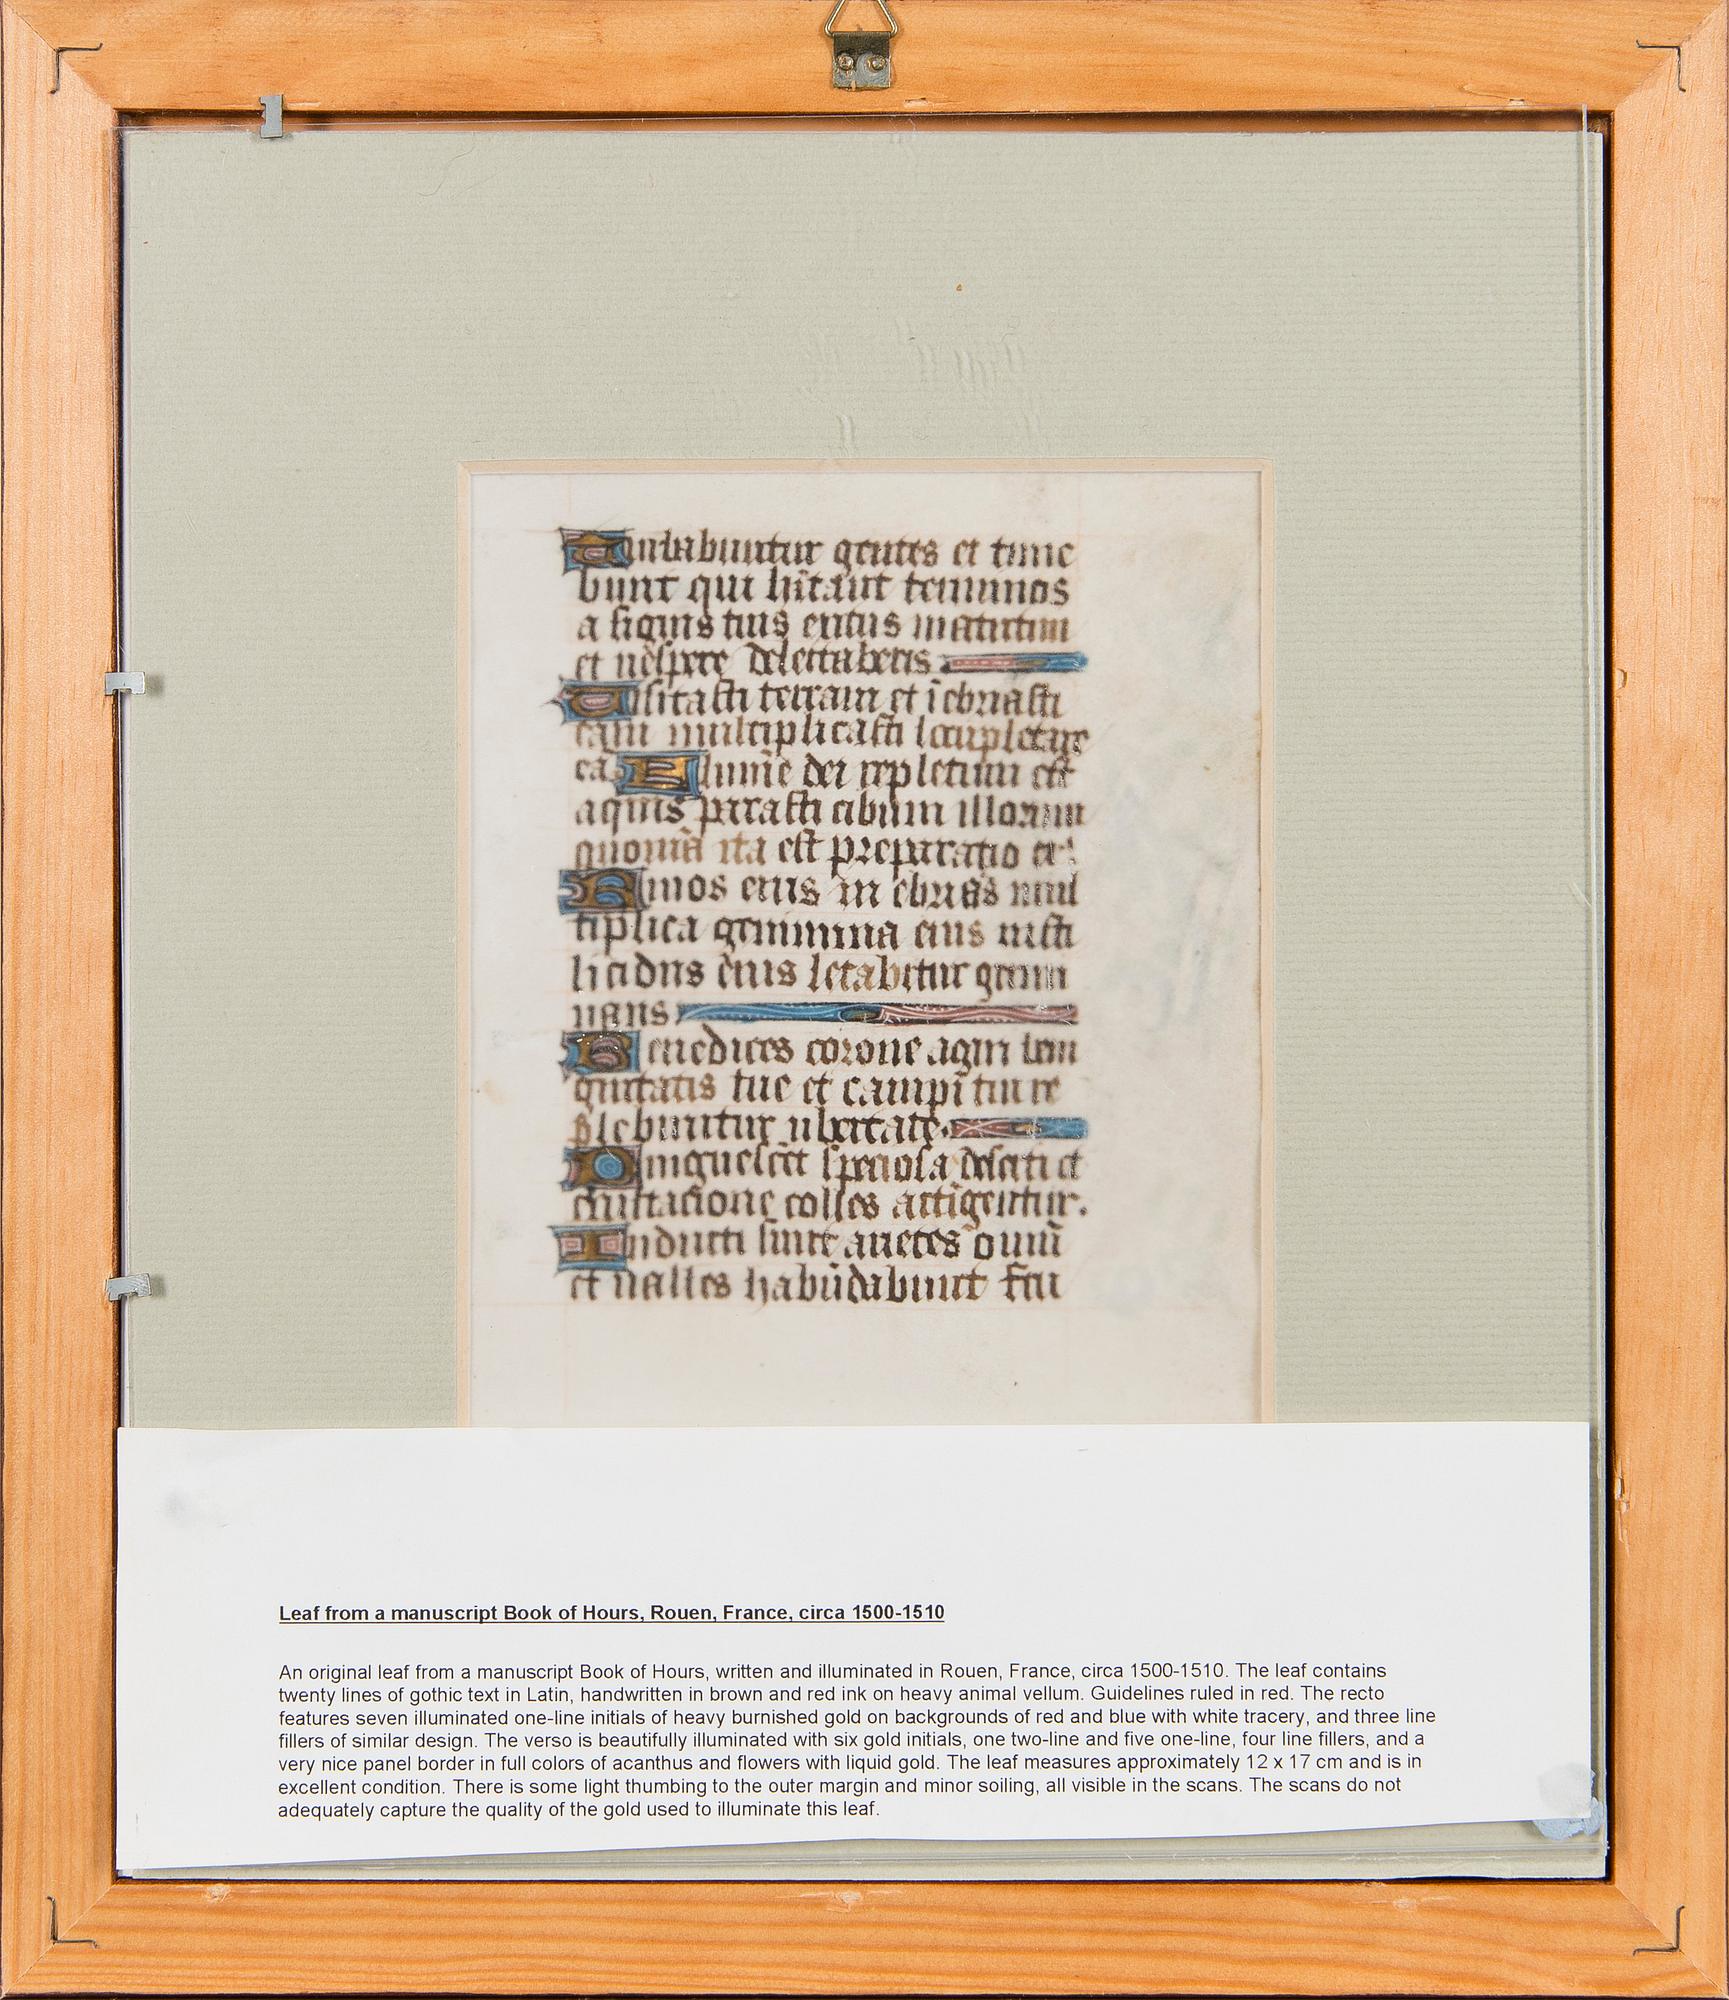 Turbabuntur gentes et time
bunt qui hitant terminos
a signis tuis exitus matutini
et vespere delectaberis
Visitasti terram et iebriasti
eam multiplicasti locupletare
eā Flumē dei repletum est
aquis parasti cibum illorum
quoniā ita est preparatio ei
Rivos eius in ebrias mul
tiplica genimina eius insti
licidiis eius letabitur germi
nans
Benedices corone anni beni
gnitatis tue et campi tui re
plebuntur ubertate
Pinguescēt speciosa deserti et
exultacione colles accīgentur.
Induti sunt arietes oviū
et valles habūdabunt fru
Leaf from a manuscript Book of Hours, Rouen, France, circa 1500-1510
An original leaf from a manuscript Book of Hours, written and illuminated in Rouen, France, circa 1500-1510. The leaf contains
twenty lines of gothic text in Latin, handwritten in brown and red ink on heavy animal vellum. Guidelines ruled in red. The recto
features seven illuminated one-line initials of heavy burnished gold on backgrounds of red and blue with white tracery, and three line
fillers of similar design. The verso is beautifully illuminated with six gold initials, one two-line and five one-line, four line fillers, and a
very nice panel border in full colors of acanthus and flowers with liquid gold. The leaf measures approximately 12 x 17 cm and is in
excellent condition. There is some light thumbing to the outer margin and minor soiling, all visible in the scans. The scans do not
adequately capture the quality of the gold used to illuminate this leaf.